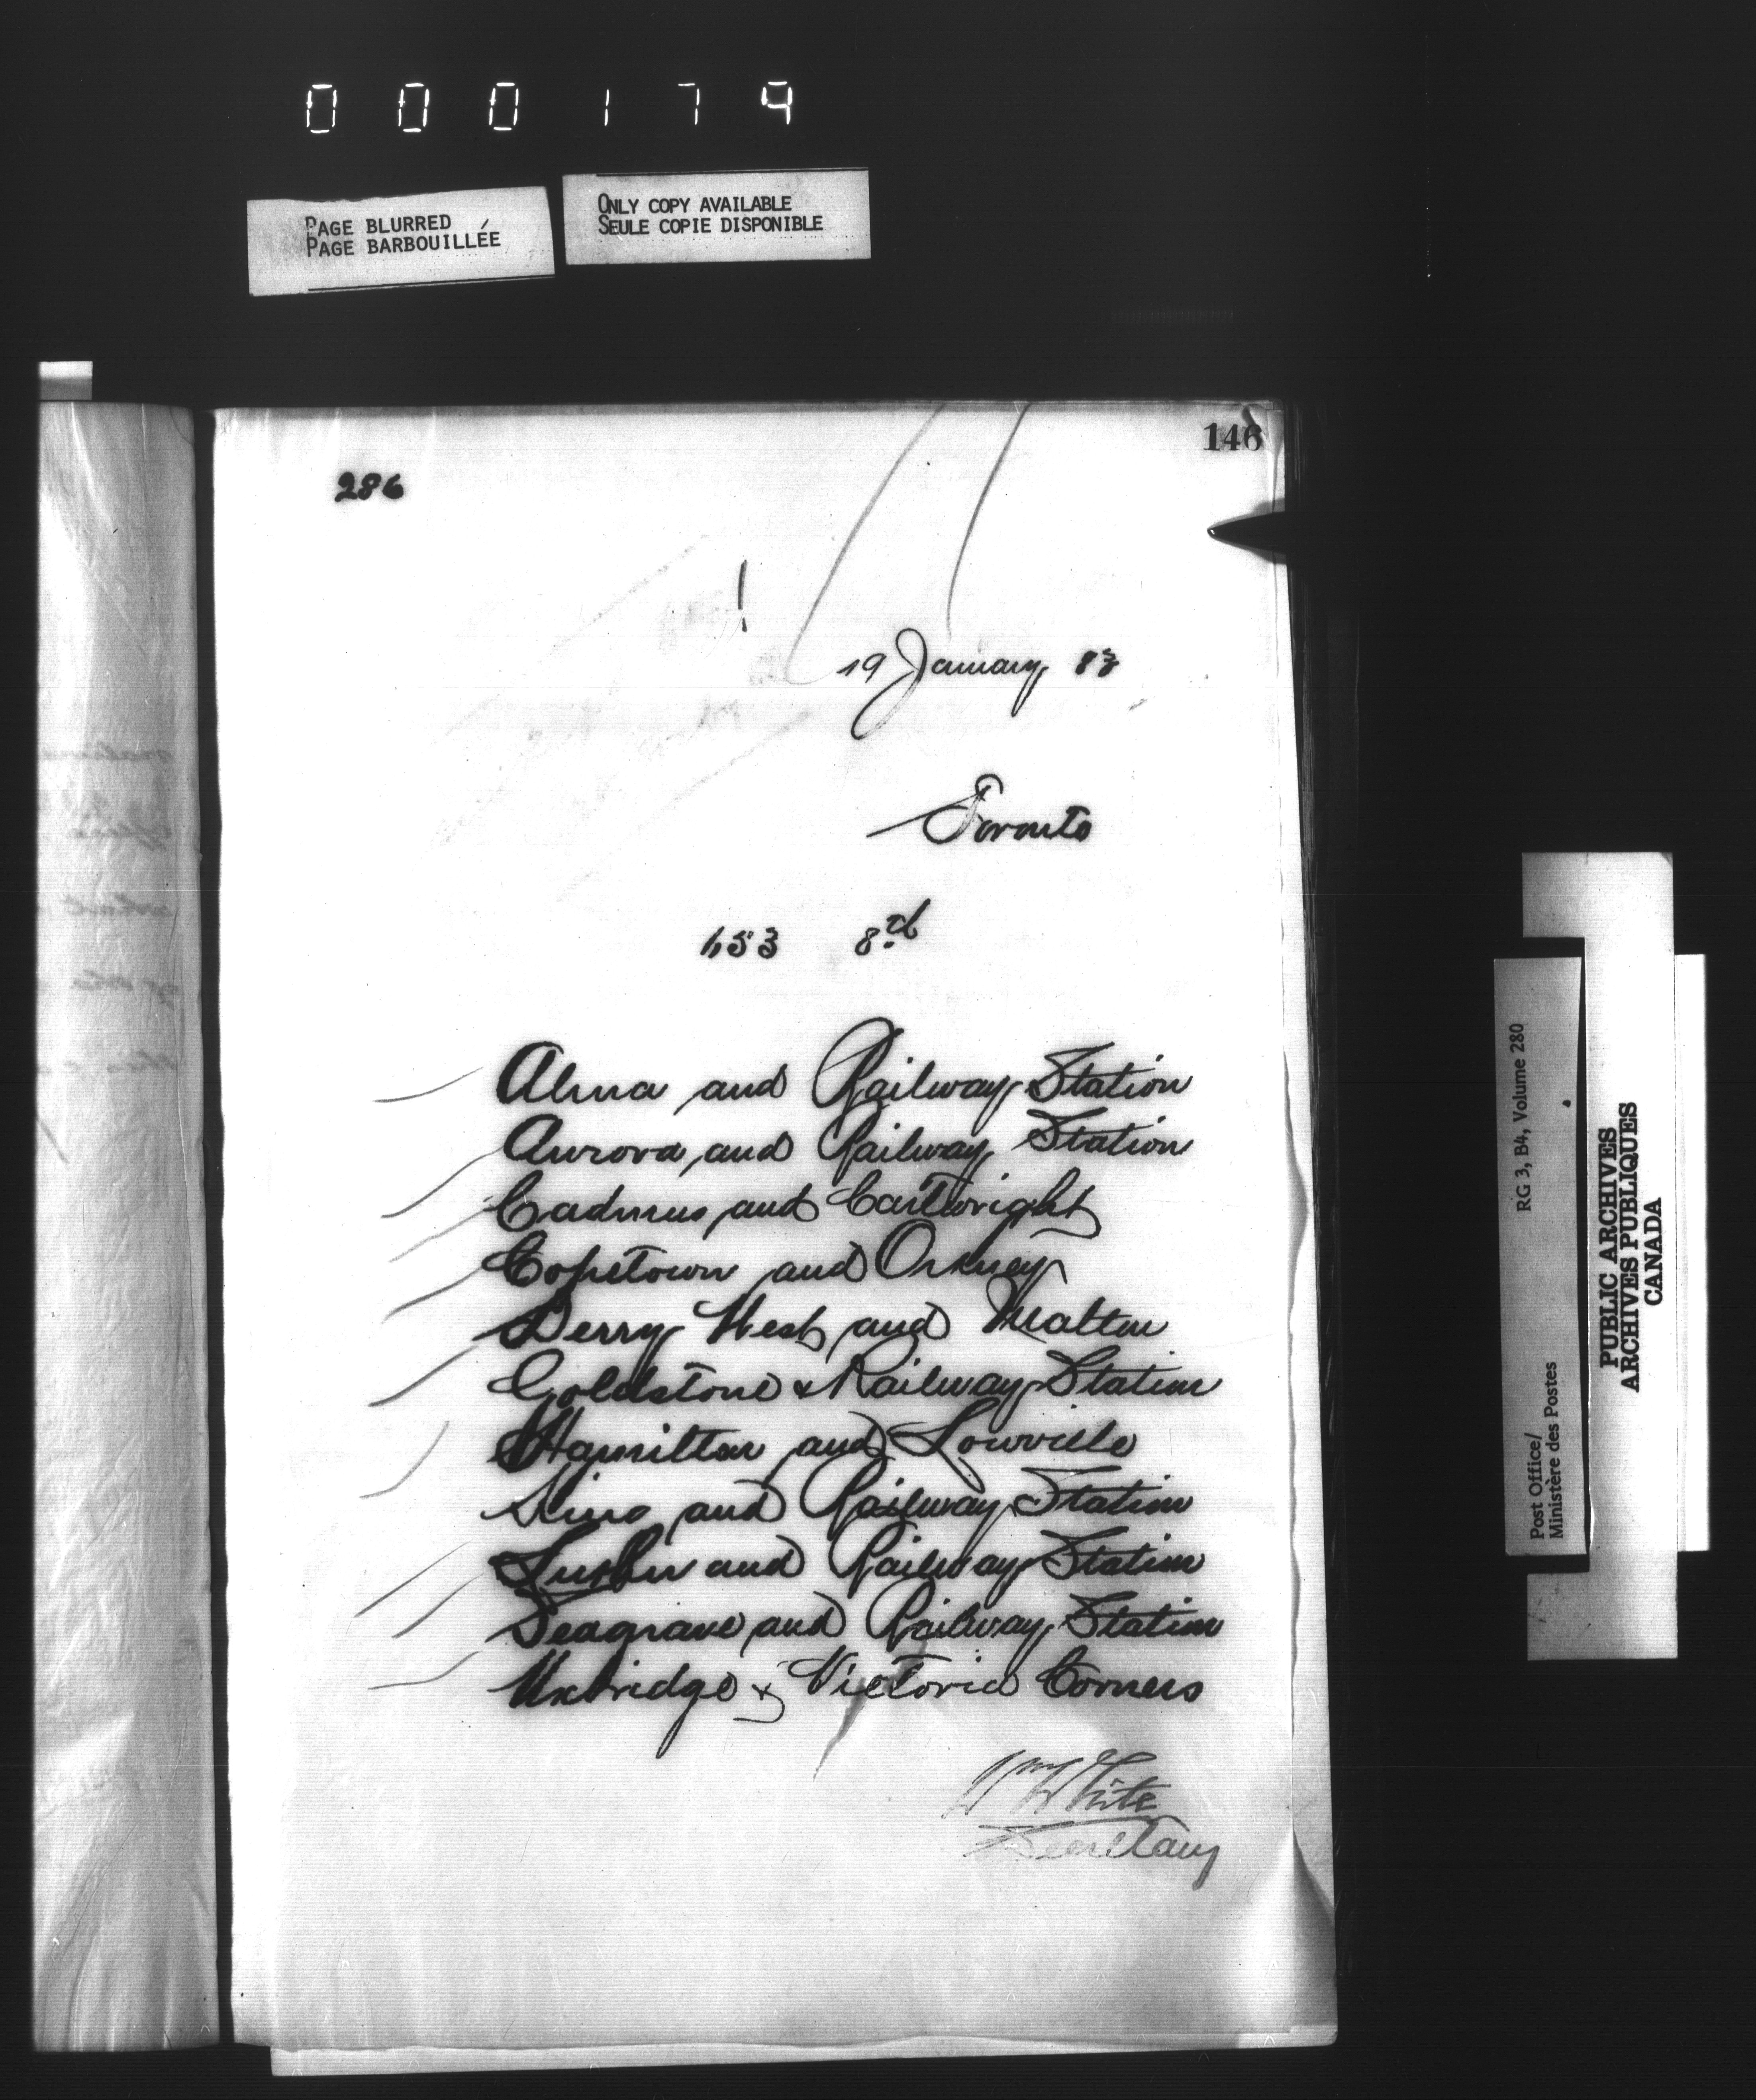 000179
PAGE BLURRED
PAGE BARBOUILLÉE
ONLY COPY AVAILABLE
SEULE COPIE DISPONIBLE
146
286
19 January 83
Toronto
153 8th
Alma and Railway Station
Aurora and Railway Station
Cadmus and Cartwright
Copetown and Orkney
Derry West and Malton
Goldstone & Railway Station
Hamilton and Lowville
and Railway Station
and Railway Station
Seagrave and Railway Station
Uxbridge & Victoria Corners
Wm White
Secretary
RG 3, B4, Volume 280
Post Office/
Ministère des Postes
PUBLIC ARCHIVES
ARCHIVES PUBLIQUES
CANADA